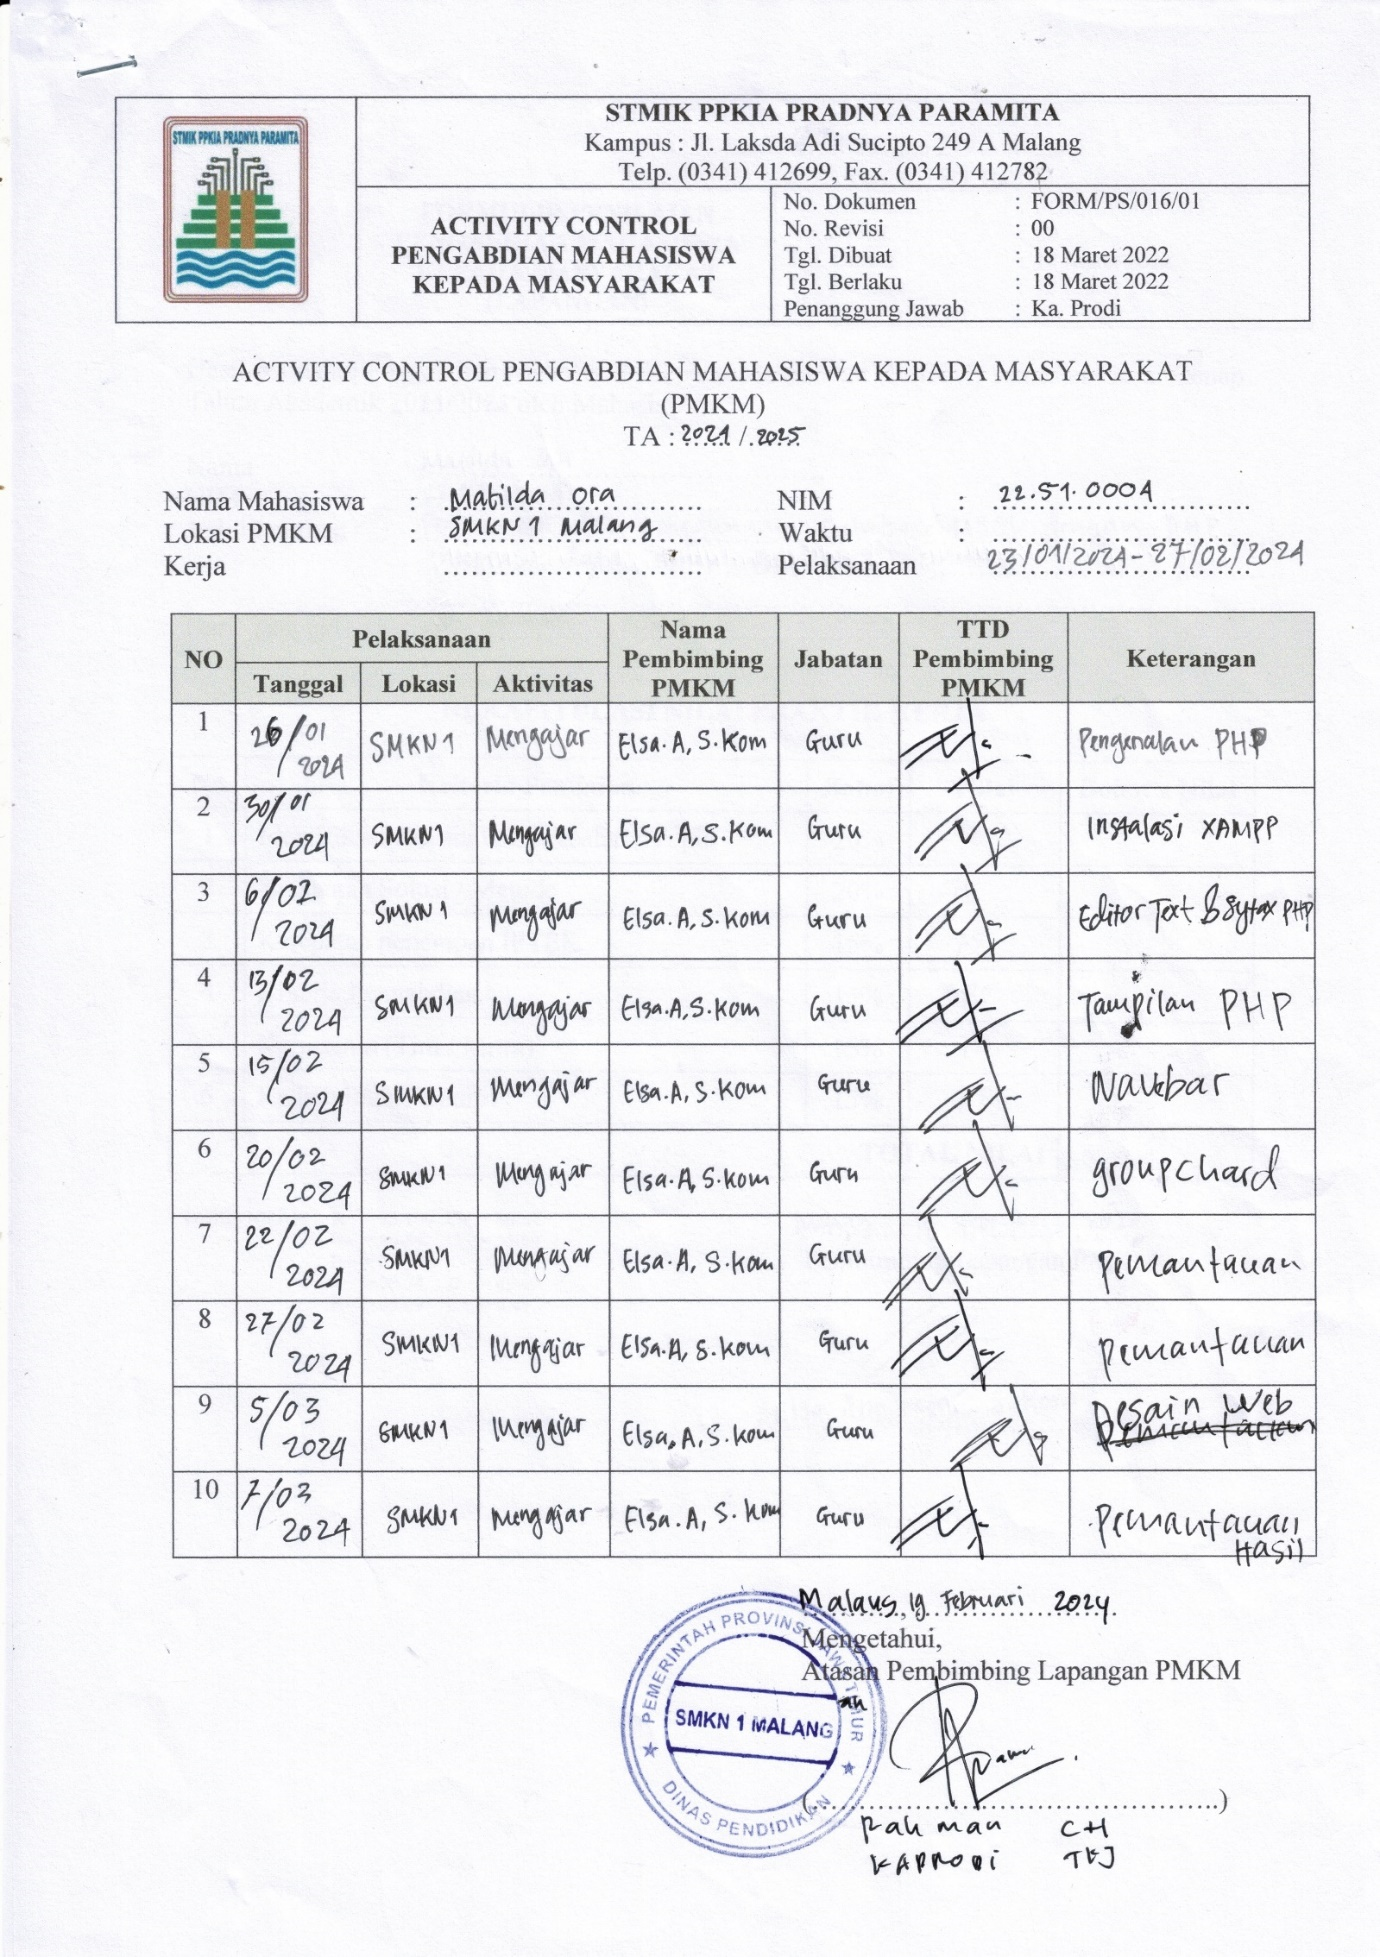 STMIK PPKIA PRADNYA PARAMITA
STMIK PPKIA PRADNYA PARAMITA
Kampus : Jl. Laksda Adi Sucipto 249 A Malang
Telp. (0341) 412699, Fax. (0341) 412782
ACTIVITY CONTROL
PENGABDIAN MAHASISWA
KEPADA MASYARAKAT
No. Dokumen : FORM/PS/016/01
No. Revisi : 00
Tgl. Dibuat : 18 Maret 2022
Tgl. Berlaku : 18 Maret 2022
Penanggung Jawab : Ka. Prodi
ACTVITY CONTROL PENGABDIAN MAHASISWA KEPADA MASYARAKAT
(PMKM)
TA : 2024 / 2025
Nama Mahasiswa : Matilda Ora NIM : 22.51.0004
Lokasi PMKM : SMKN 1 Malang Waktu :
Kerja Pelaksanaan 23/01/2024 - 27/02/2024
NO Pelaksanaan Nama Pembimbing PMKM Jabatan TTD Pembimbing PMKM Keterangan
Tanggal Lokasi Aktivitas
1 26/01 2024 SMKN 1 Mengajar Elsa.A, S.Kom Guru Pengenalan PHP
2 30/01 2024 SMKN1 Mengajar Elsa.A, S.Kom Guru Instalasi XAMPP
3 6/02 2024 SMKN 1 Mengajar Elsa.A, S.Kom Guru Editor Text & Sytax PHP
4 13/02 2024 SMKN1 Mengajar Elsa.A, S.Kom Guru Tampilan PHP
5 15/02 2024 SMKN1 Mengajar Elsa.A, S.Kom Guru Navbar
6 20/02 2024 SMKN1 Mengajar Elsa.A, S.Kom Guru groupchard
7 22/02 2024 SMKN1 Mengajar Elsa.A, S.Kom Guru Pemantauan
8 27/02 2024 SMKN1 Mengajar Elsa.A, S.Kom Guru Pemantauan
9 5/03 2024 SMKN1 Mengajar Elsa.A, S.Kom Guru Desain Web
10 7/03 2024 SMKN1 Mengajar Elsa.A, S.Kom Guru Pemantauan Hasil
Malang, 19 Februari 2024
Mengetahui,
Atasan Pembimbing Lapangan PMKM
an
PEMERINTAH PROVINSI JAWA TIMUR
SMKN 1 MALANG
DINAS PENDIDIKAN
(..........)
Rahman CH
KAPRODI TKJ